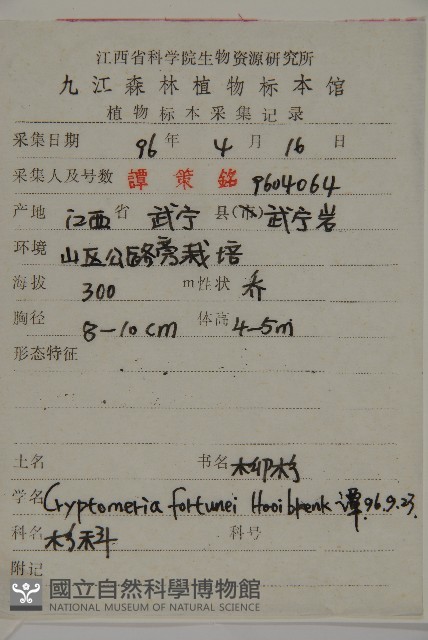 江西省科学院生物资源研究所
九江森林植物标本馆
植物标本采集记录
采集日期 96 年 4 月 16 日
采集人及号数 譚策銘 9604064
产地 江西 省 武宁 县(市) 武宁岩
环境 山区公路旁栽培
海拔 300 m 性状 乔
胸径 8-10cm 体高 4-5m
形态特征
土名 书名 柳杉
学名 Cryptomeria fortunei Hooibrenk 譚.96.9.23.
科名 杉科 科号
附记
國立自然科學博物館
NATIONAL MUSEUM OF NATURAL SCIENCE